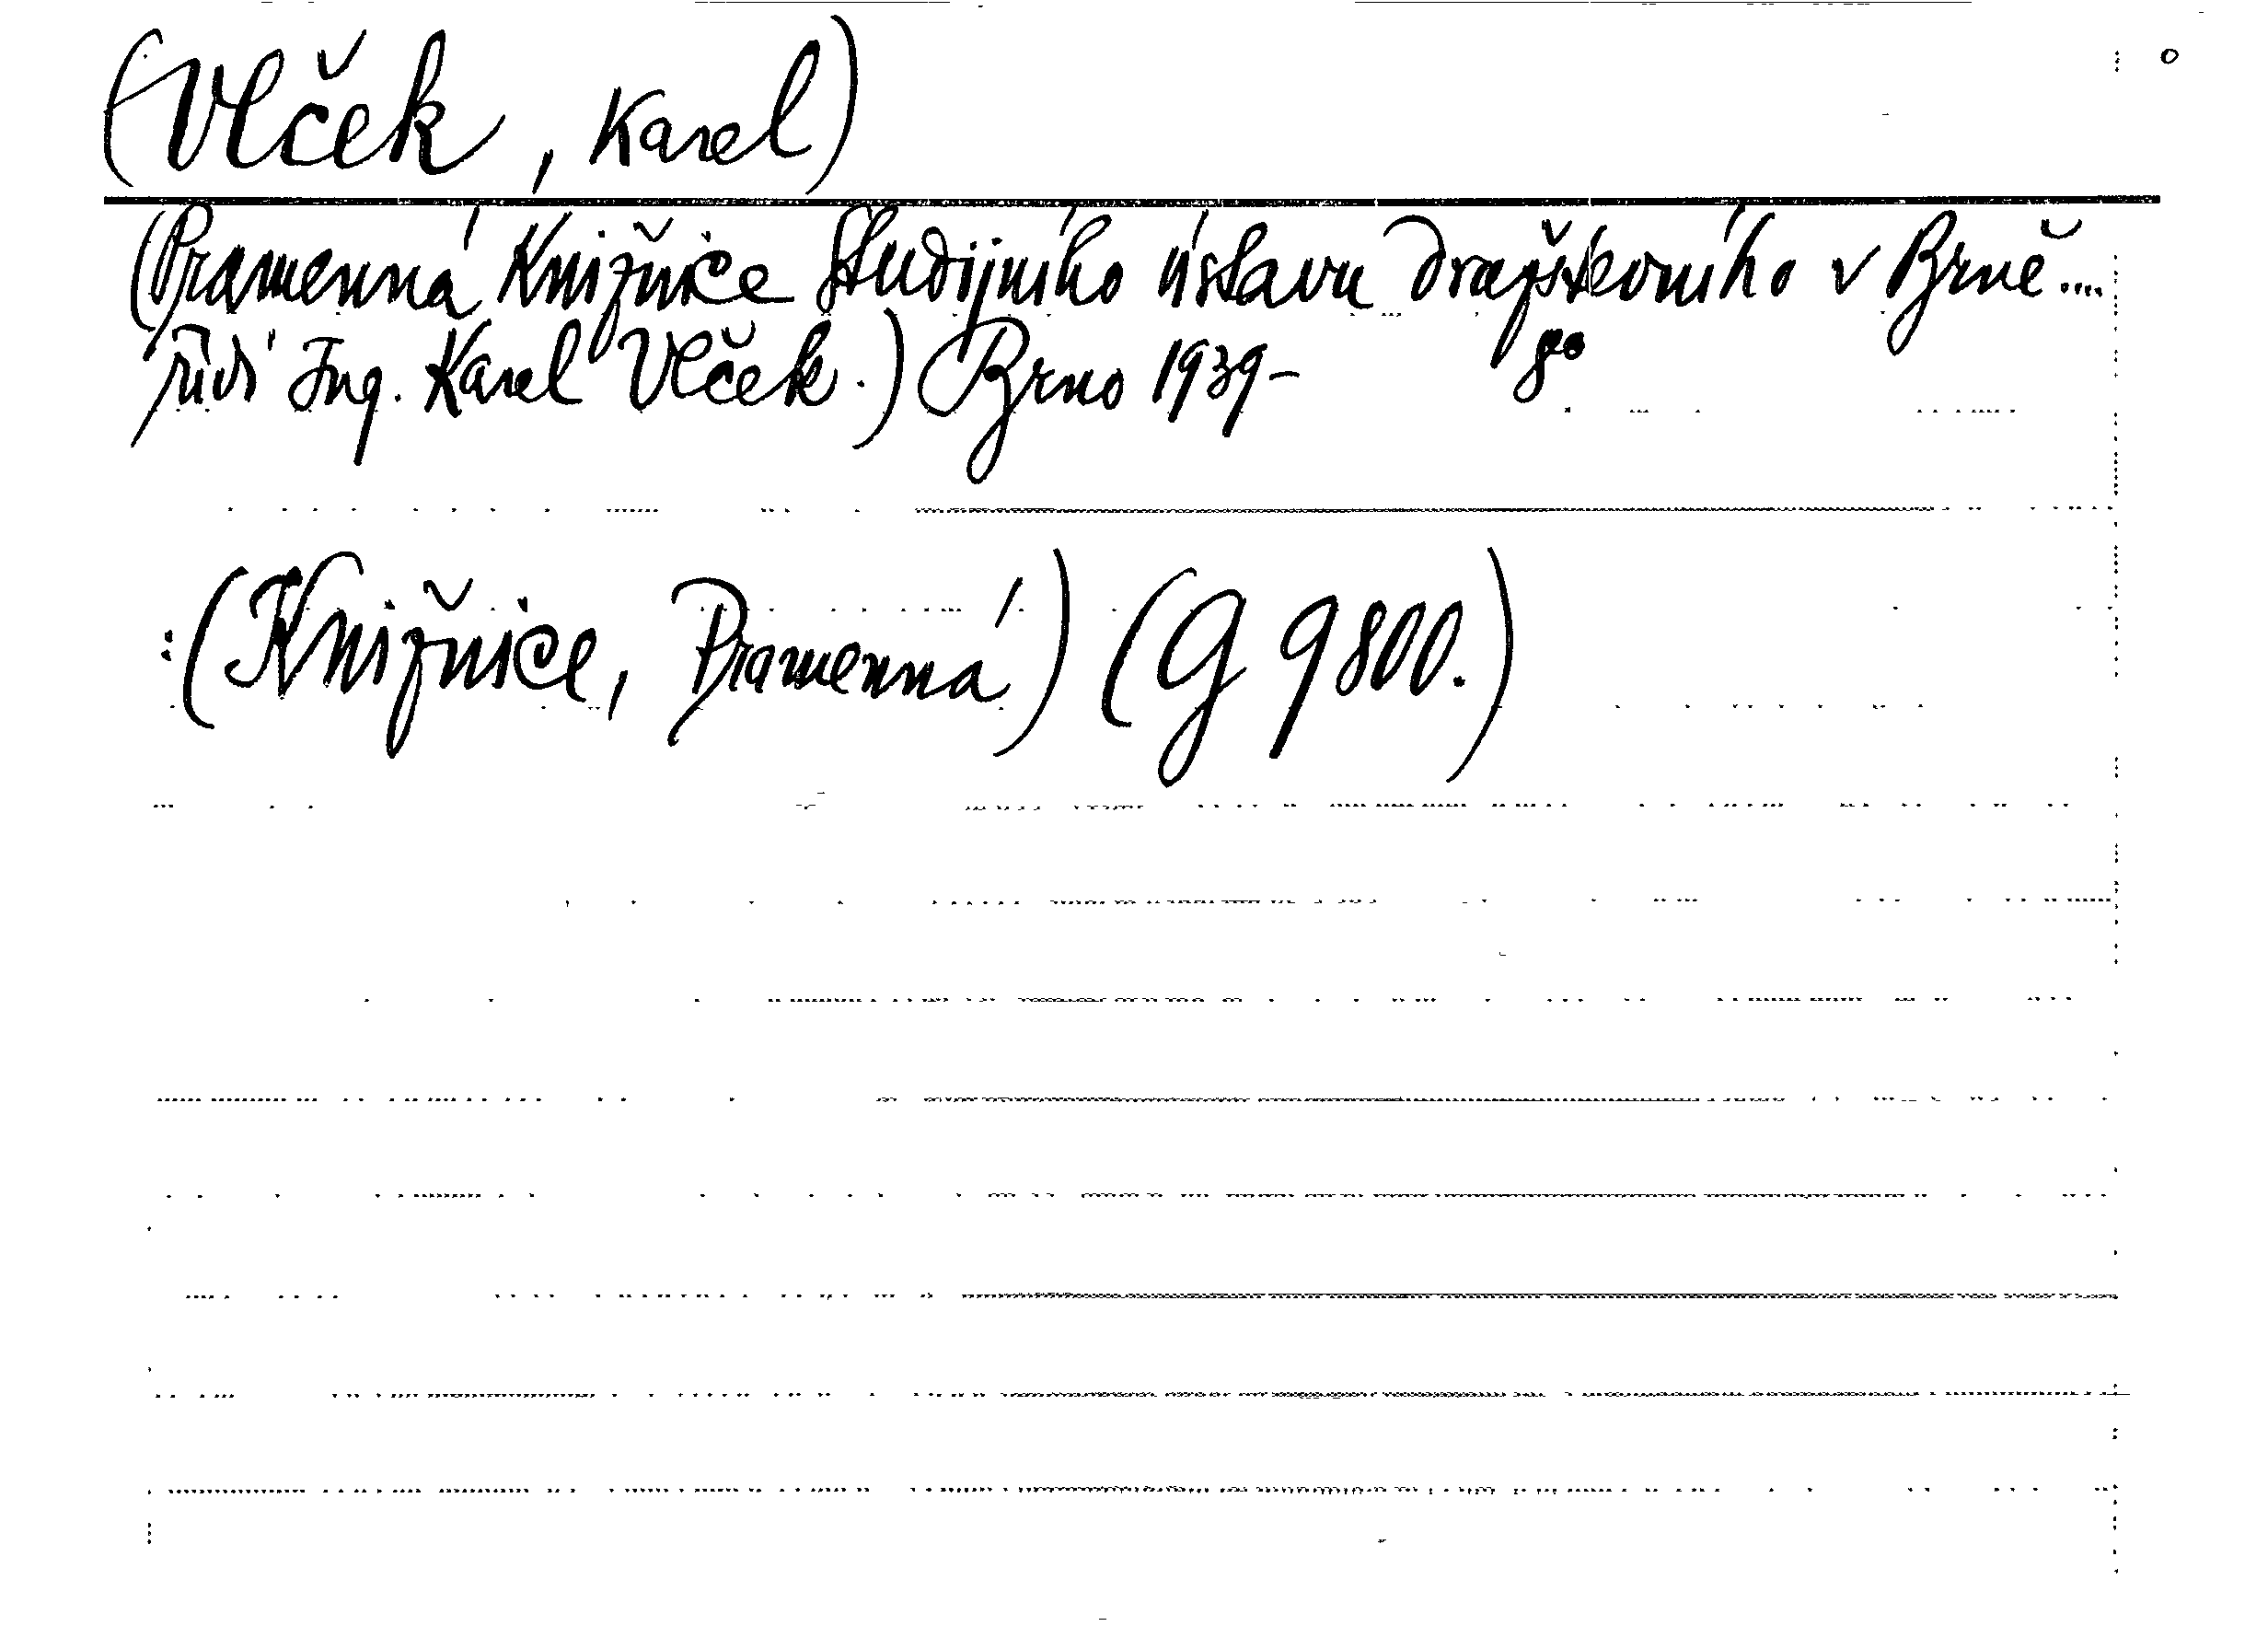 (Vlček, Karel)
(Pramenná Knižnice Studijního ústavu družstevního v Brně....
řídí Ing. Karel Vlček.) Brno 1939- 8°
:(Knižnice, Pramenná) (G 9800.)